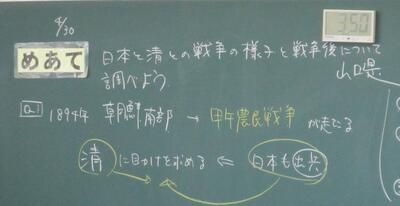 4/30
350
めあて
日本と清との戦争の様子と戦争後について
調べよう。
山口県
Q1 1894年 朝鮮南部 → 甲午農民戦争 が起こる
清 に助けを求める ⇐ 日本も出兵